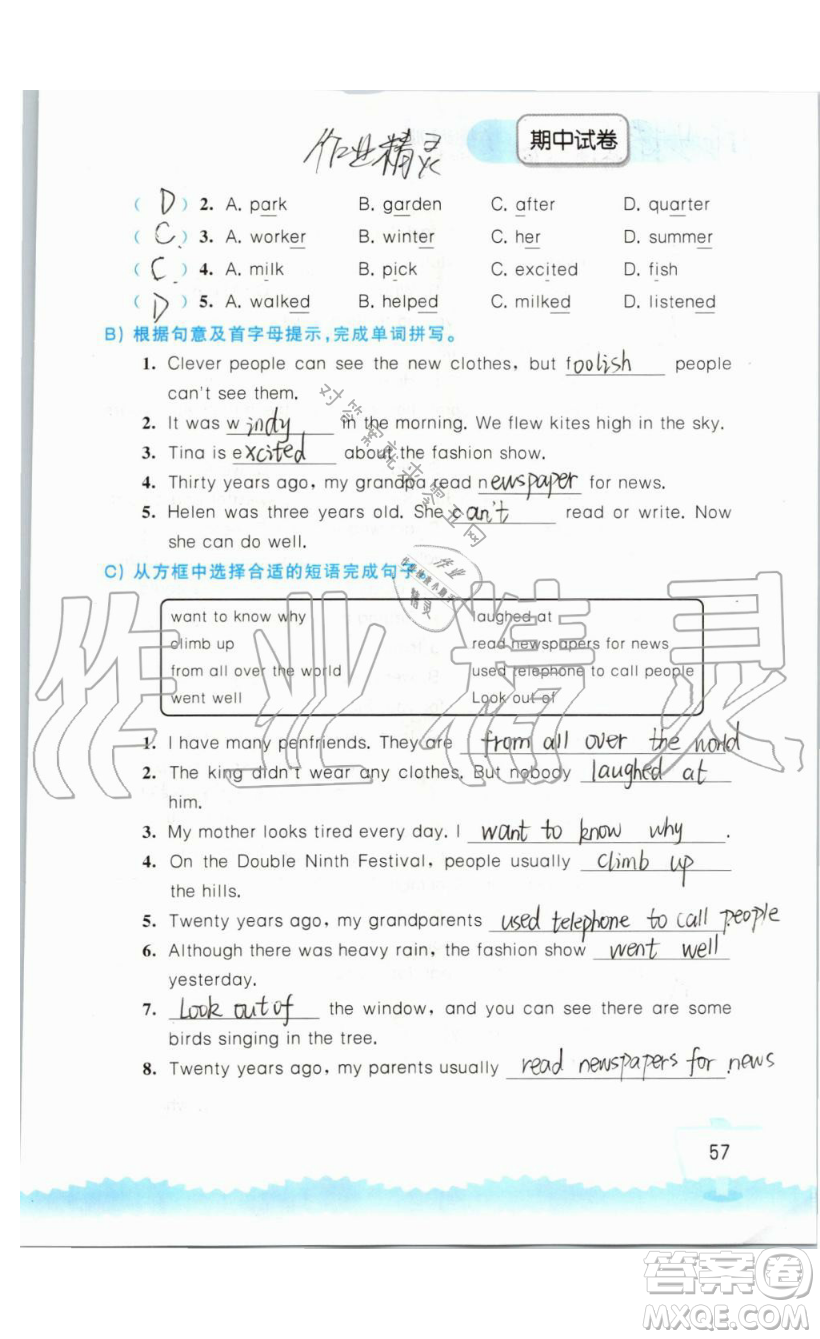 作业精灵
期中试卷
( D ) 2. A. park B. garden C. after D. quarter
( C ) 3. A. worker B. winter C. her D. summer
( C ) 4. A. milk B. pick C. excited D. fish
( D ) 5. A. walked B. helped C. milked D. listened
B) 根据句意及首字母提示,完成单词拼写。
1. Clever people can see the new clothes, but foolish people
can't see them.
2. It was windy in the morning. We flew kites high in the sky.
3. Tina is excited about the fashion show.
4. Thirty years ago, my grandpa read newspaper for news.
5. Helen was three years old. She can't read or write. Now
she can do well.
C) 从方框中选择合适的短语完成句子。
want to know why laughed at
climb up read newspapers for news
from all over the world used telephone to call people
went well Look out of
1. I have many penfriends. They are from all over the world
2. The king didn't wear any clothes. But nobody laughed at
him.
3. My mother looks tired every day. I want to know why .
4. On the Double Ninth Festival, people usually climb up
the hills.
5. Twenty years ago, my grandparents used telephone to call people
6. Although there was heavy rain, the fashion show went well
yesterday.
7. Look out of the window, and you can see there are some
birds singing in the tree.
8. Twenty years ago, my parents usually read newspapers for news.
57
对答案就来零五网
作业精灵
作业精灵
答案圈
MXQE.COM